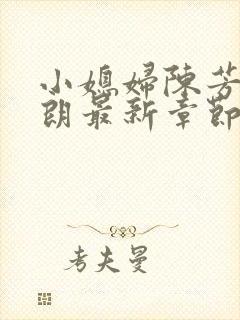 小媳婦陳芳
朗最新章節
考夫曼